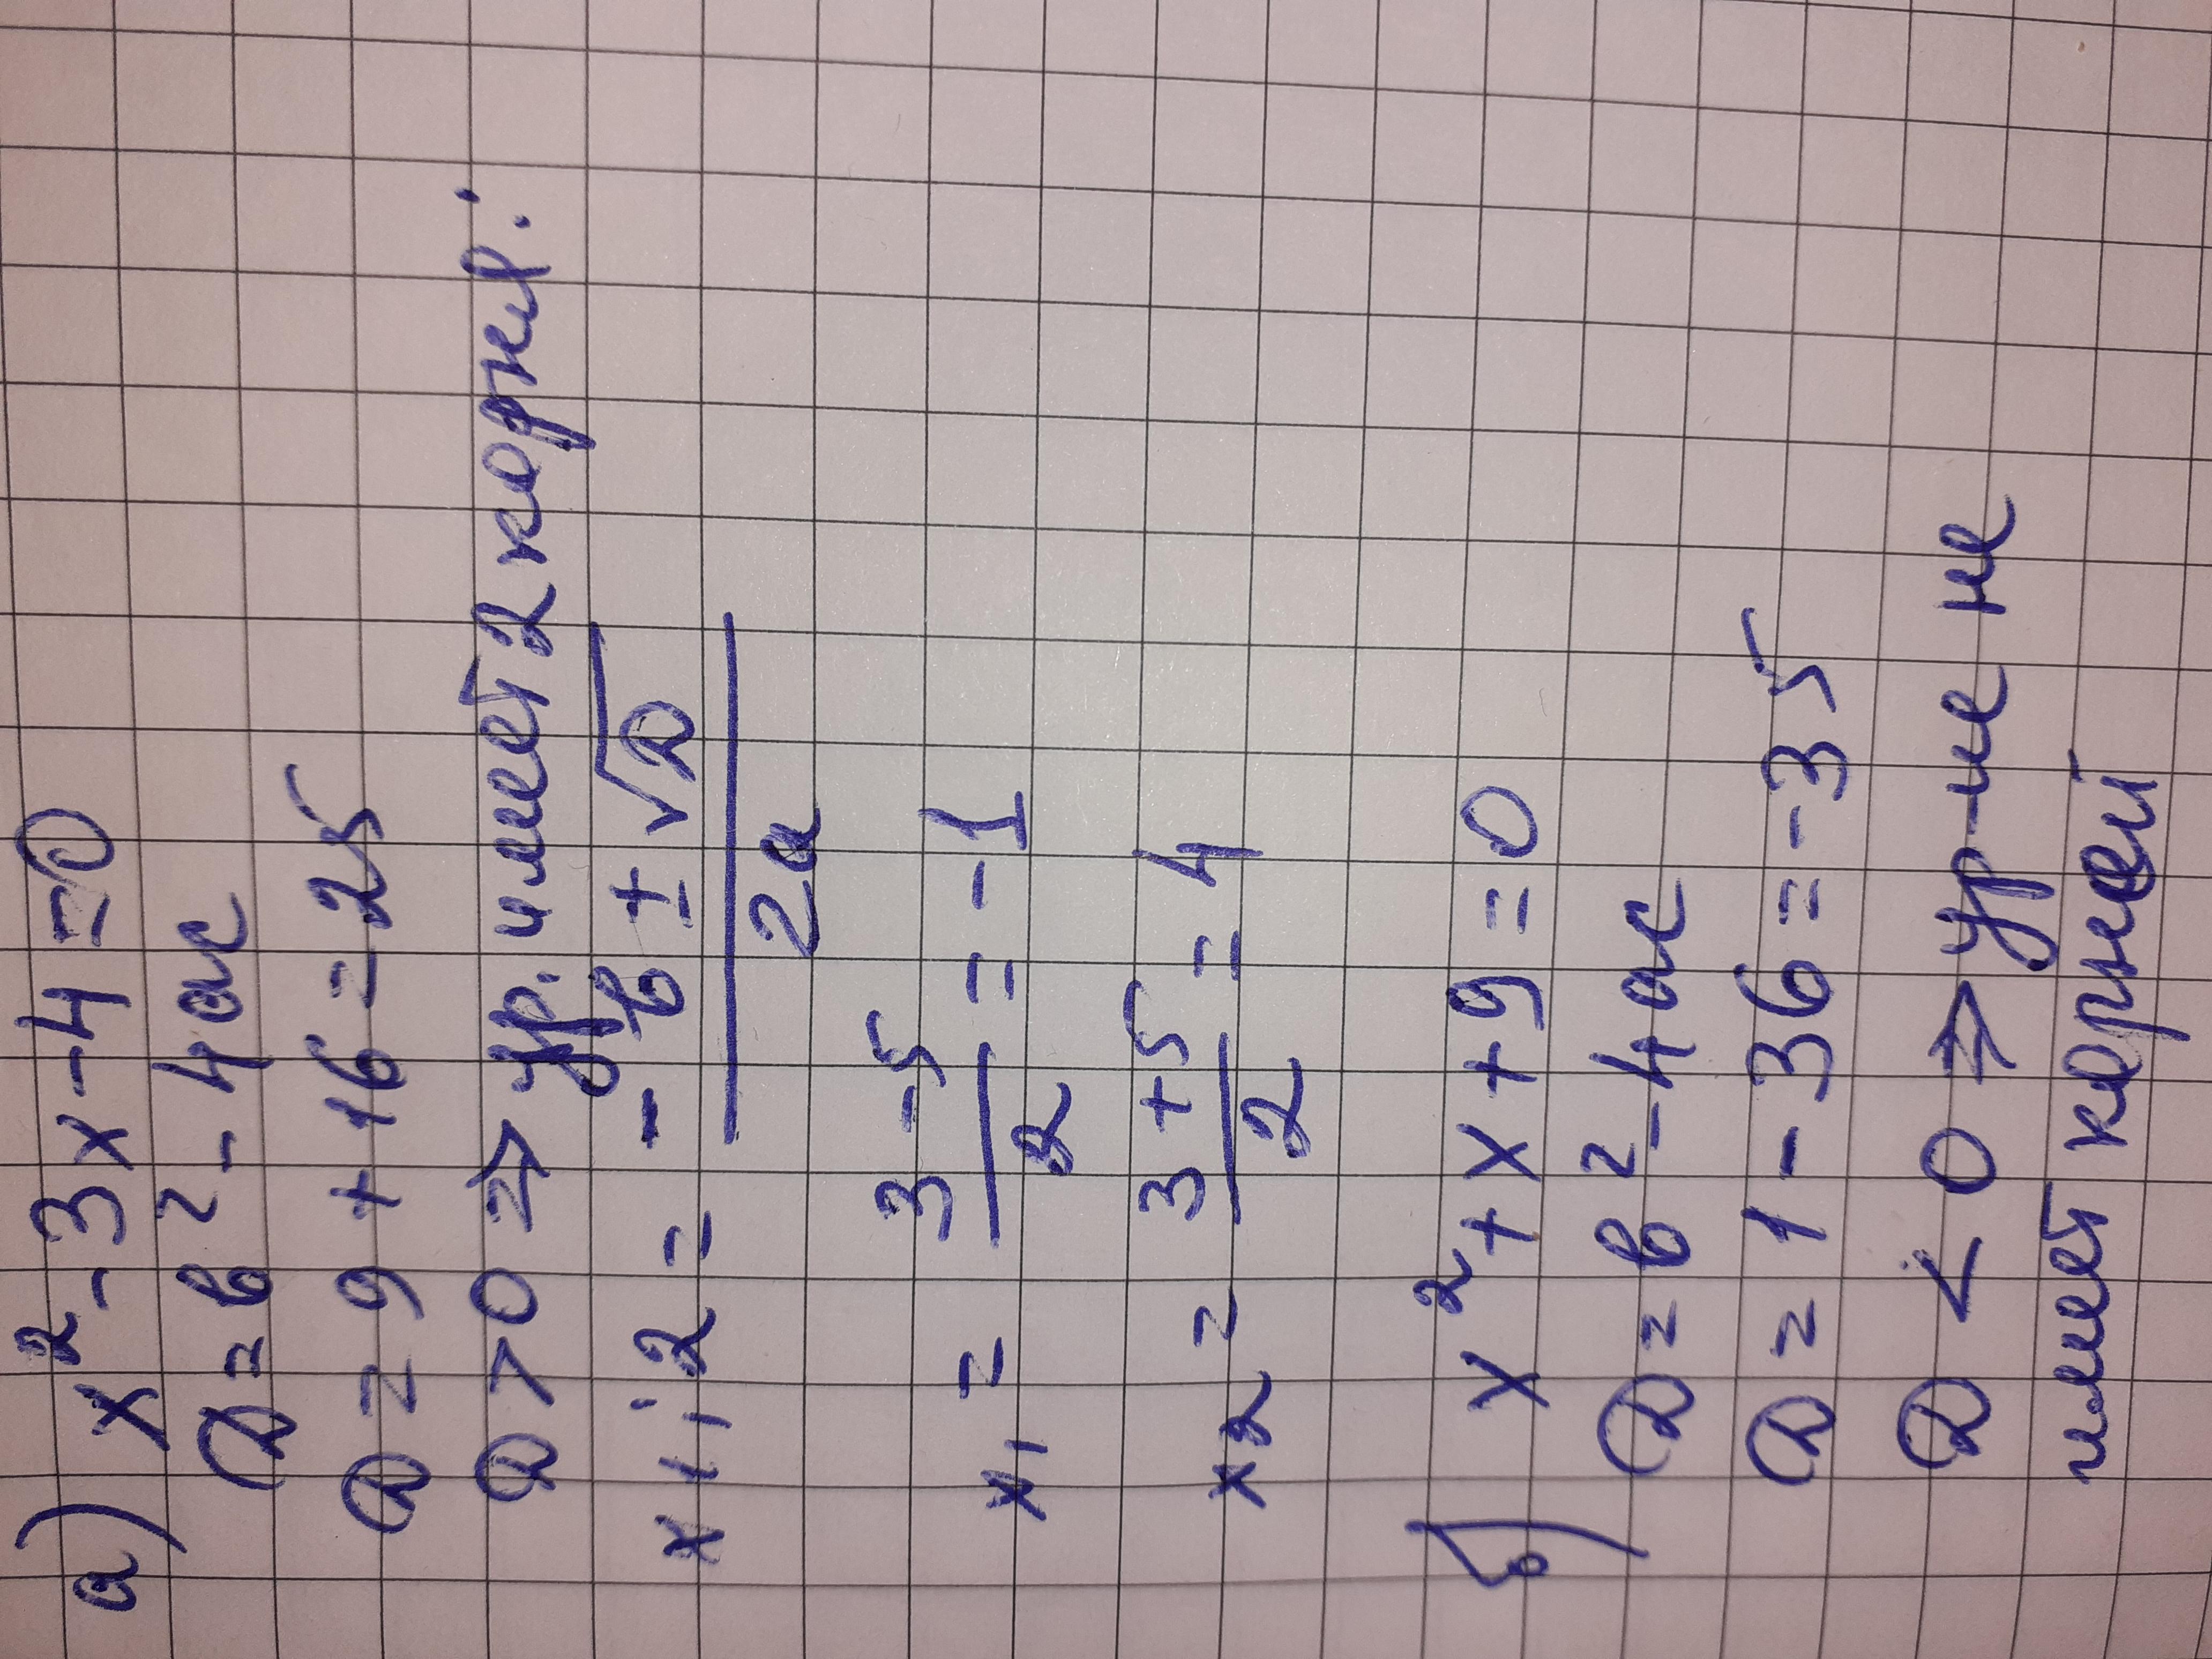 а) x² - 3x - 4 = 0
D = b² - 4ac
D = 9 + 16 = 25
D > 0 => ур. имеет 2 корня:
x1,2 = (-b ± √D) / 2a
x1 = (3 - 5) / 2 = -1
x2 = (3 + 5) / 2 = 4
б) x² + x + 9 = 0
D = b² - 4ac
D = 1 - 36 = -35
D < 0 => ур-ие не
имеет корней